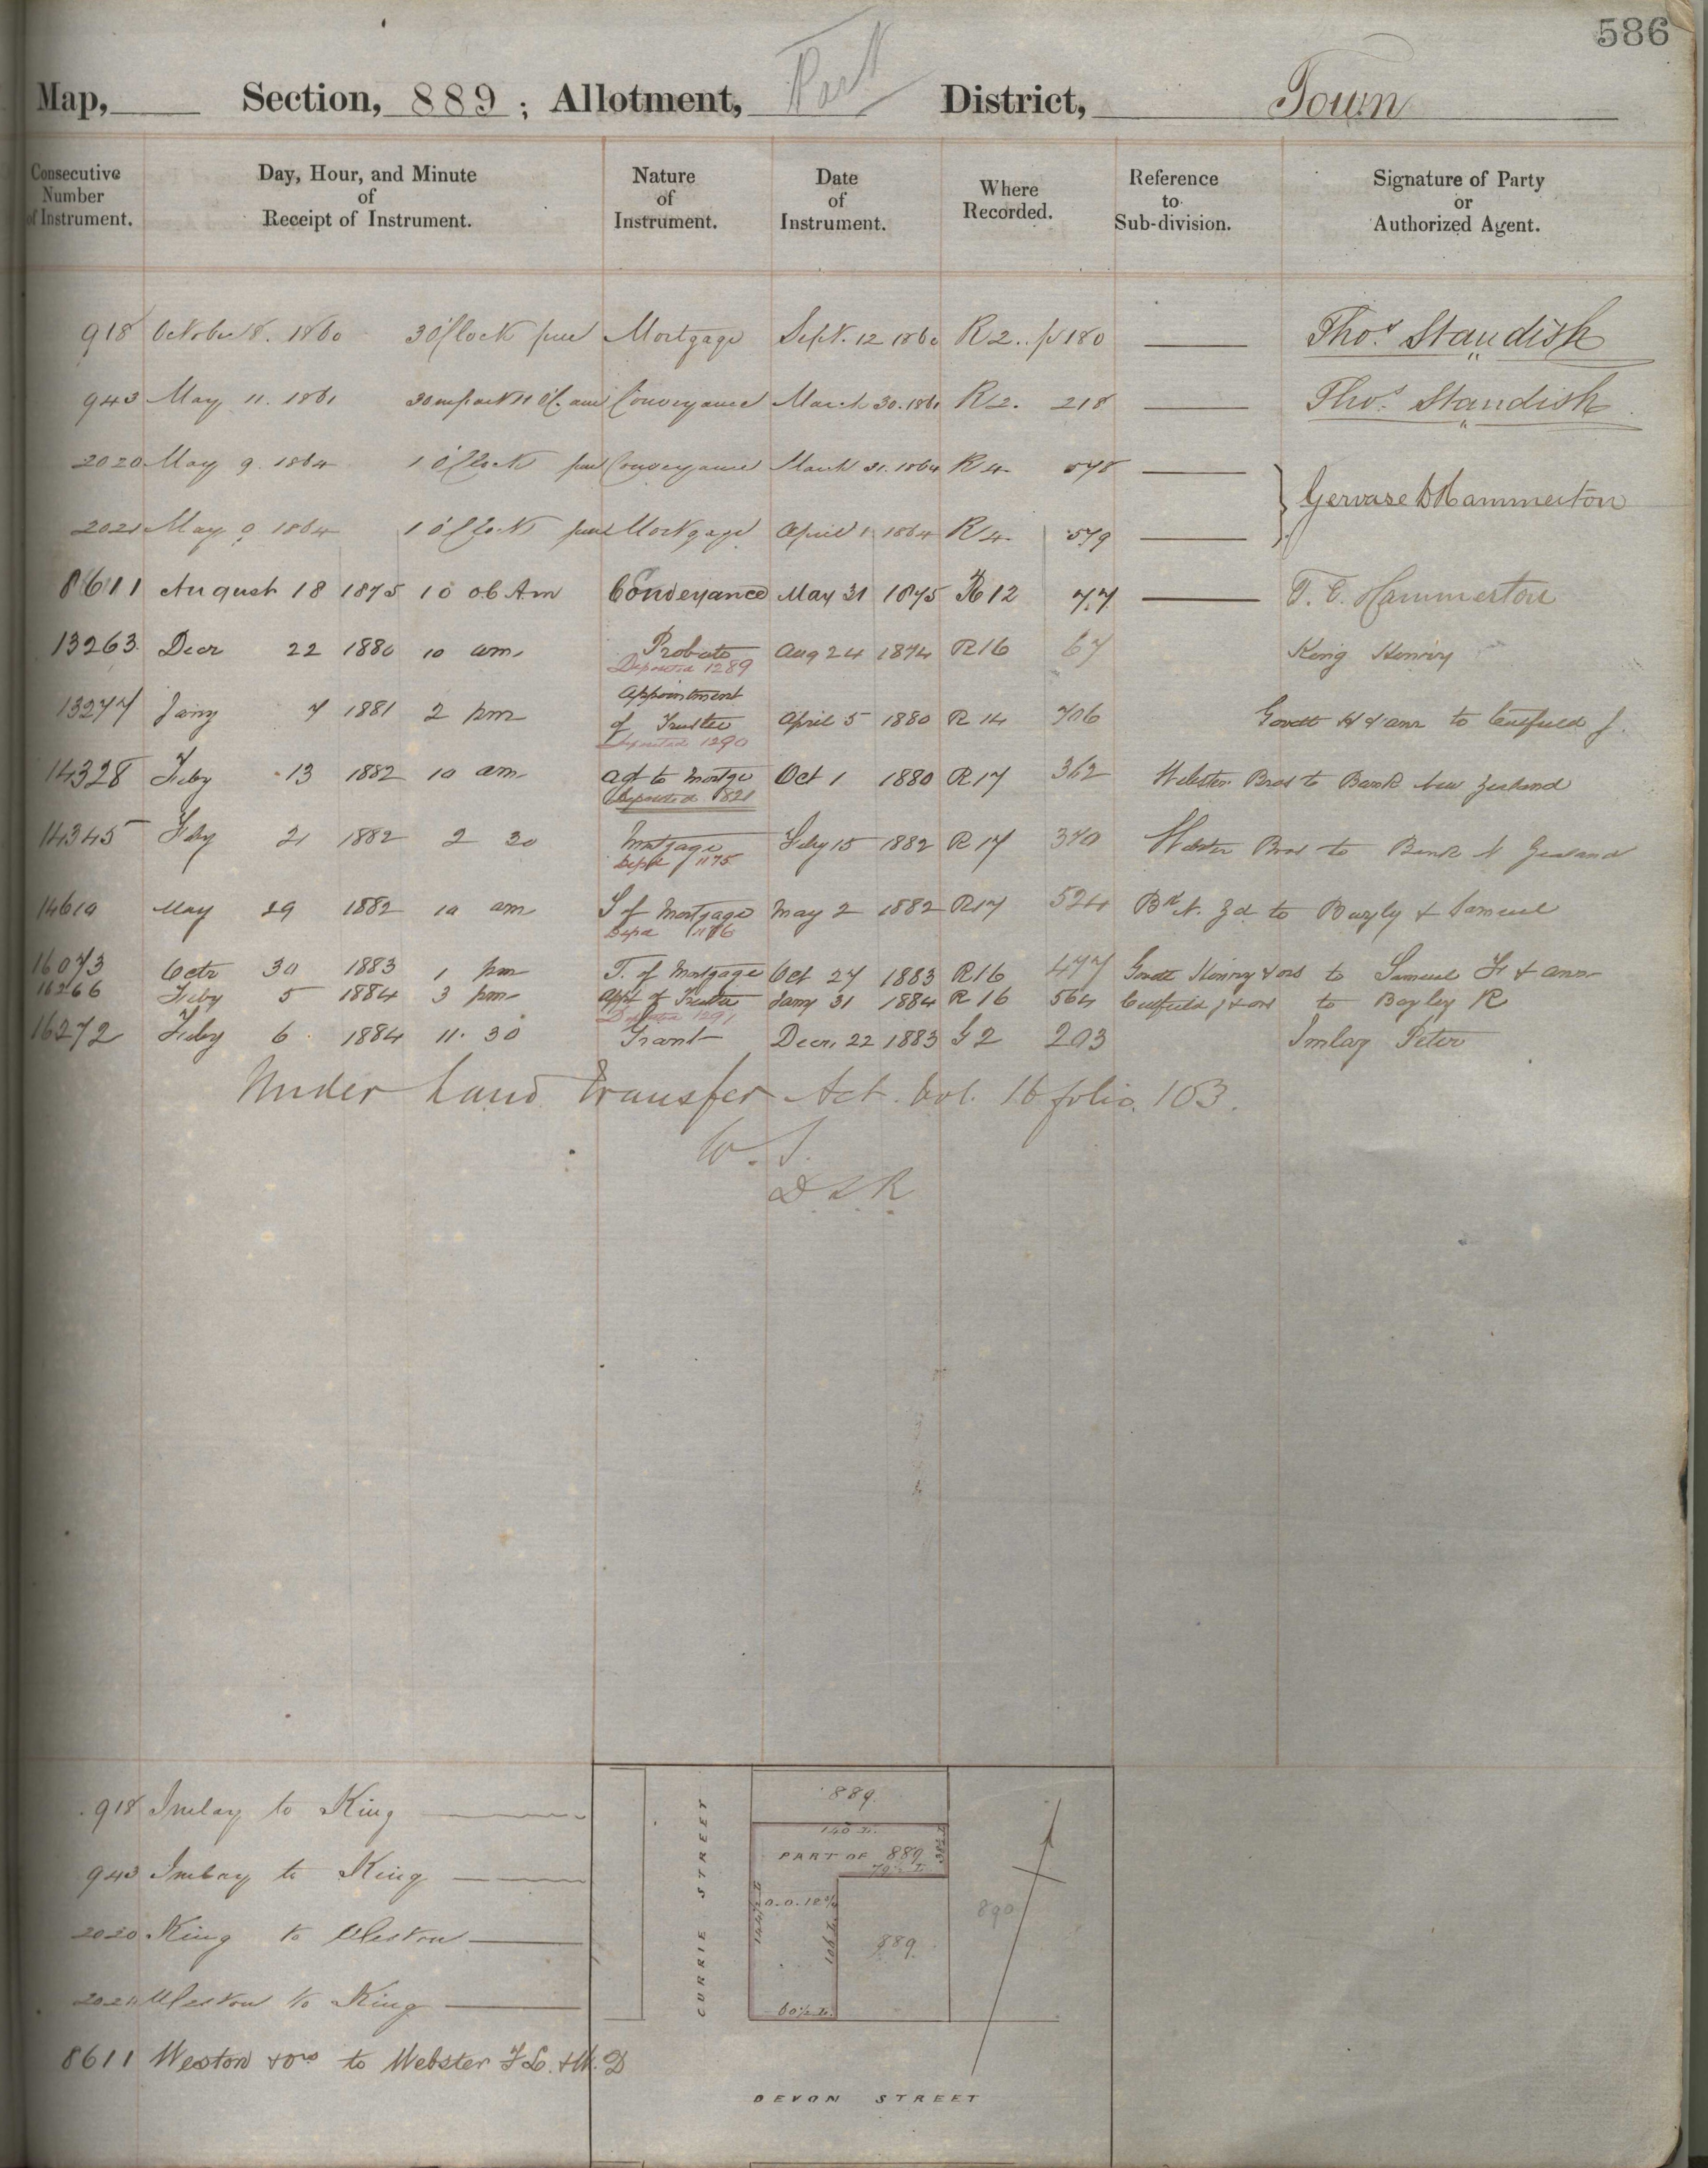 586
Map, Section, 889; Allotment, Part District, Town
Consecutive Number of Instrument. Day, Hour, and Minute of Receipt of Instrument. Nature of Instrument. Date of Instrument. Where Recorded. Reference to Sub-division. Signature of Party or Authorized Agent.
918 October 8. 1860 3 O'Clock pm Mortgage Sept. 12 1860 R2.. p 180 Thos. Standish
943 May 11. 1861 30 m past 11 O'C. am Conveyance March 30. 1861 R2. 218 Thos. Standish
2020 May 9. 1864 1 O'Clock pm Conveyance March 31. 1864 R4 578
Gervase D Hammerton
2021 May 9 1864 1 O'Clock pm Mortgage April 1 1864 R4 579
8611 August 18 1875 10 ob Am Conveyance May 31 1875 R12 77 T. E. Hammerton
13263 Decr 22 1880 10 am. Probate Aug 24 1874 R16 67 King Henry
Deposited 1289
13277 Jany 7 1881 2 pm Appointment of Trustee April 5 1880 R14 706 Govett H & anr to Caulfield J.
Deposited 1290
14328 Feby 13 1882 10 am agt to Mortge Oct 1 1880 R17 362 Webster Bros to Bank New Zealand
Deposited 1821
14345 Feby 21 1882 2 30 Mortgage Feby 15 1882 R17 370 Webster Bros to Bank N Zealand
Depd 1175
14610 May 29 1882 10 am S of Mortgage May 2 1882 R17 524 Bk N. Zd to Bayly & Samuel
Depd 1176
16073 Octr 30 1883 1 pm T. of Mortgage Oct 27 1883 R16 477 Govett Henry & ors to Samuel F & anr
16266 Feby 5 1884 3 pm appt of Trustee Jany 31 1884 R16 564 Caulfield J & ors to Bayley R
Deposited 1291
16272 Feby 6 1884 11. 30 Grant Decr. 22 1883 G2 203 Imlay Peter
Under Land Transfer Act. Vol. 16 folio. 103.
W. S.
D L R
918 Imlay to King
943 Imlay to King
2020 King to Weston
2021 Weston to King
8611 Weston & ors to Webster F L. & W. D
889.
140 L.
PART OF 889
CURRIE STREET
0.0.12
889.
890
106 L.
60½ L.
DEVON STREET